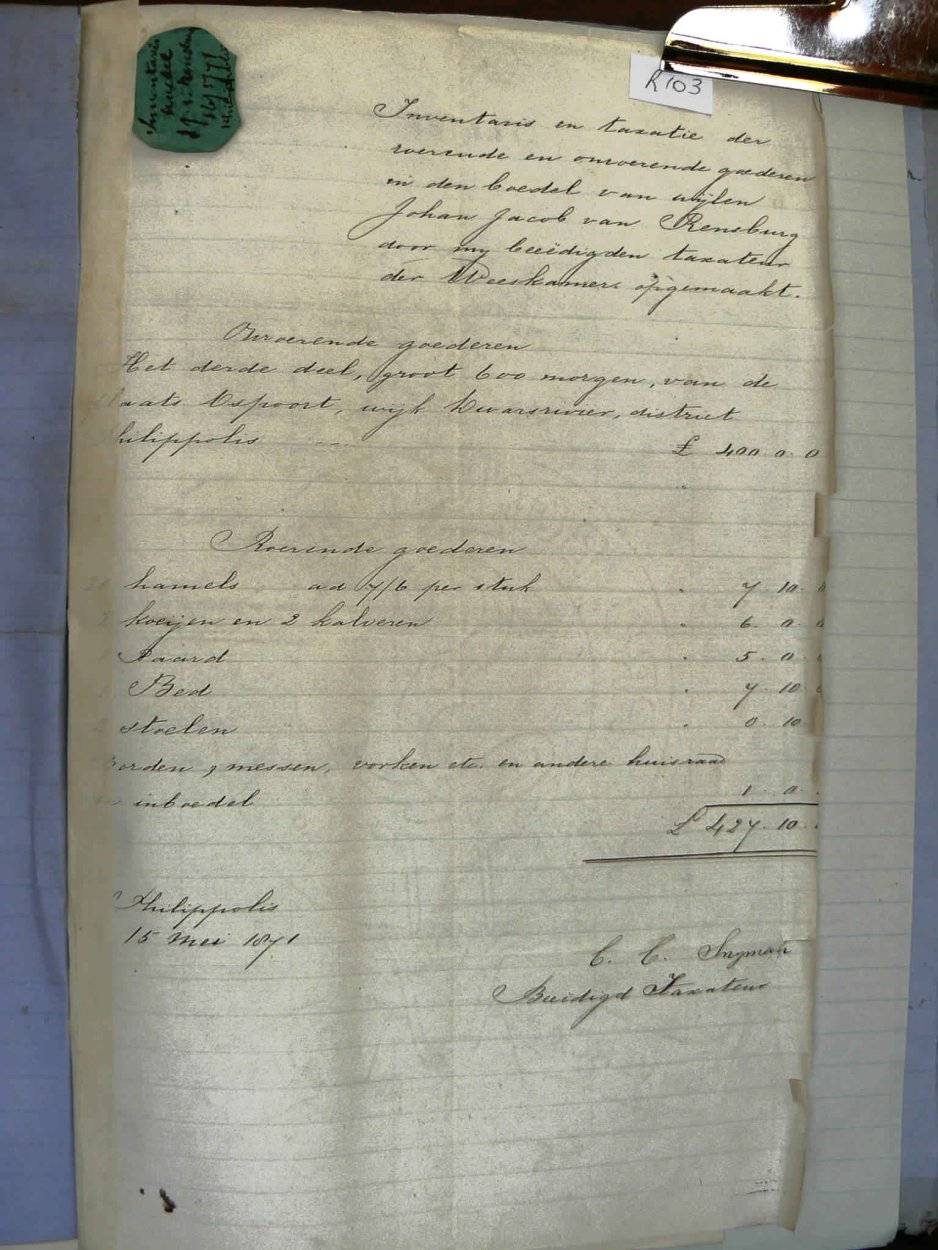 Inventaris
boedel
R103
Inventaris en taxatie der
roerende en onroerende goederen
in den boedel van wijlen
Johan Jacob van Rensburg
door my beëedigden taxateur
der Weeskamer opgemaakt.
Onroerende goederen
Het derde deel, groot 600 morgen, van de
laats Uspoort, wijk Dwarsrivier, district
hilippolis £ 400. 0. 0
Roerende goederen
hamels ad 7/6 per stuk " 7. 10. 0
koeijen en 2 kalveren " 6. 0. 0
Paard " 5. 0.
Bed " 7. 10.
stoelen " 0. 10
orden, messen, vorken etc. en andere huisraad
inboedel 1. 0.
£ 427. 10.
Philippolis
15 Mei 1871
C. C. Snyman
Beëidigd Taxateur